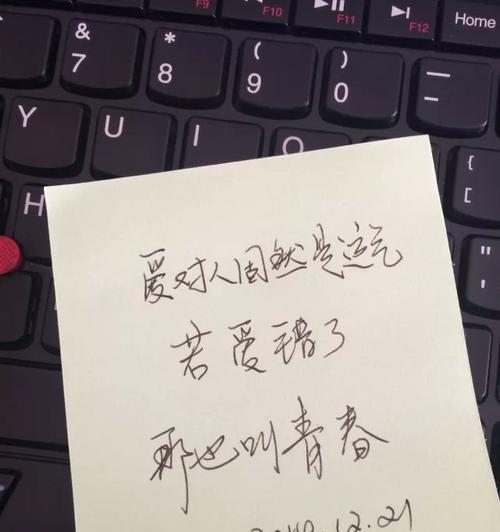 F9 F10 F11 F12 Home
& * ( )
7 8 9 0
Y U I O {
H [
"
爱对人固然是运气
若爱错了
那也叫青春
12.21